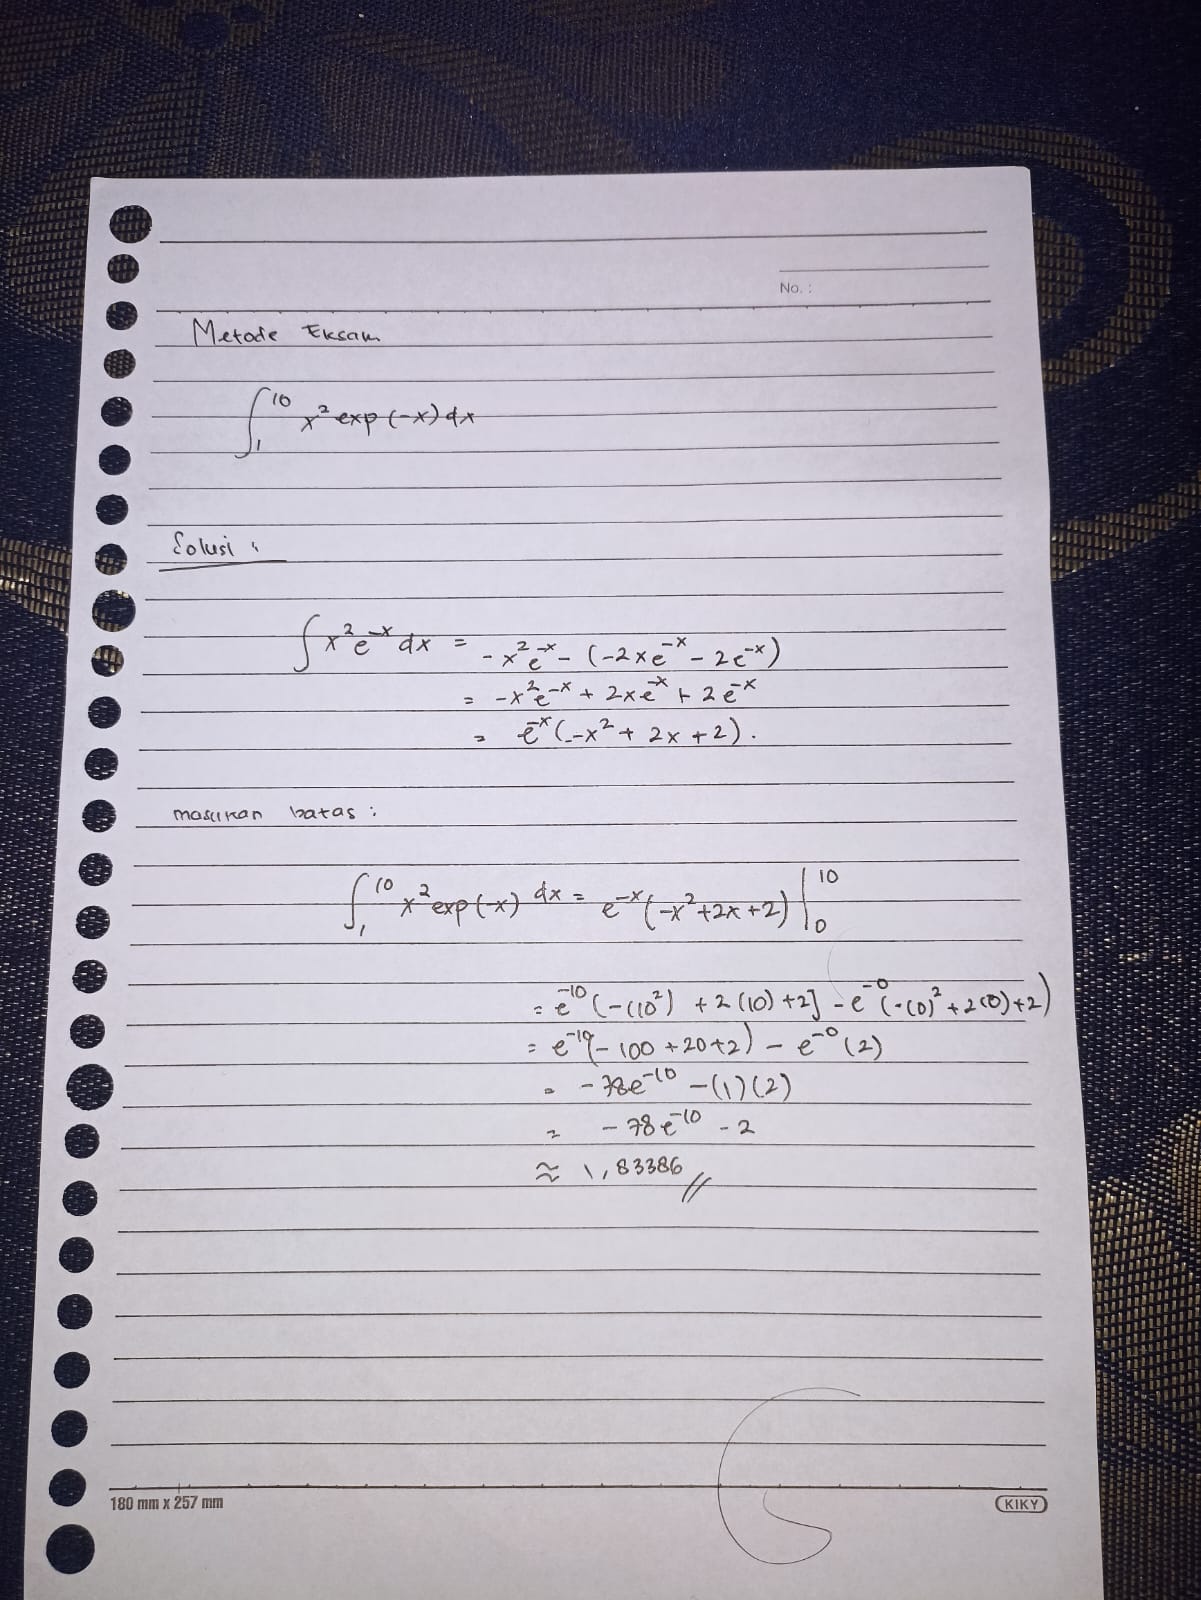 No. :
Metode Eksak
∫₁¹⁰ x² exp (-x) dx
Solusi :
∫ x² e⁻ˣ dx = - x² e⁻ˣ - (-2xe⁻ˣ - 2e⁻ˣ)
= -x² e⁻ˣ + 2xe⁻ˣ + 2e⁻ˣ
= e⁻ˣ (-x² + 2x + 2).
masukan batas :
∫₁¹⁰ x² exp (-x) dx = e⁻ˣ (-x² + 2x + 2) |₀¹⁰
= e⁻¹⁰ (-(10²) + 2 (10) + 2] - e⁻⁰ (-(0)² + 2(0) + 2)
= e⁻¹⁰ (- 100 + 20 + 2) - e⁻⁰ (2)
= - 78e⁻¹⁰ - (1) (2)
= - 78 e⁻¹⁰ - 2
≈ 1,83386 //
180 mm x 257 mm
KIKY